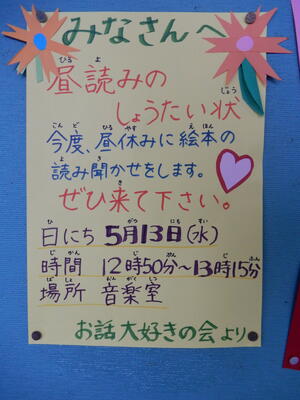 みなさんへ
昼読みの
しょうたい状
今度、昼休みに絵本の
読み聞かせをします。
ぜひ来て下さい。
日にち 5月13日(水)
時間 12時50分〜13時15分
場所 音楽室
お話大好きの会より